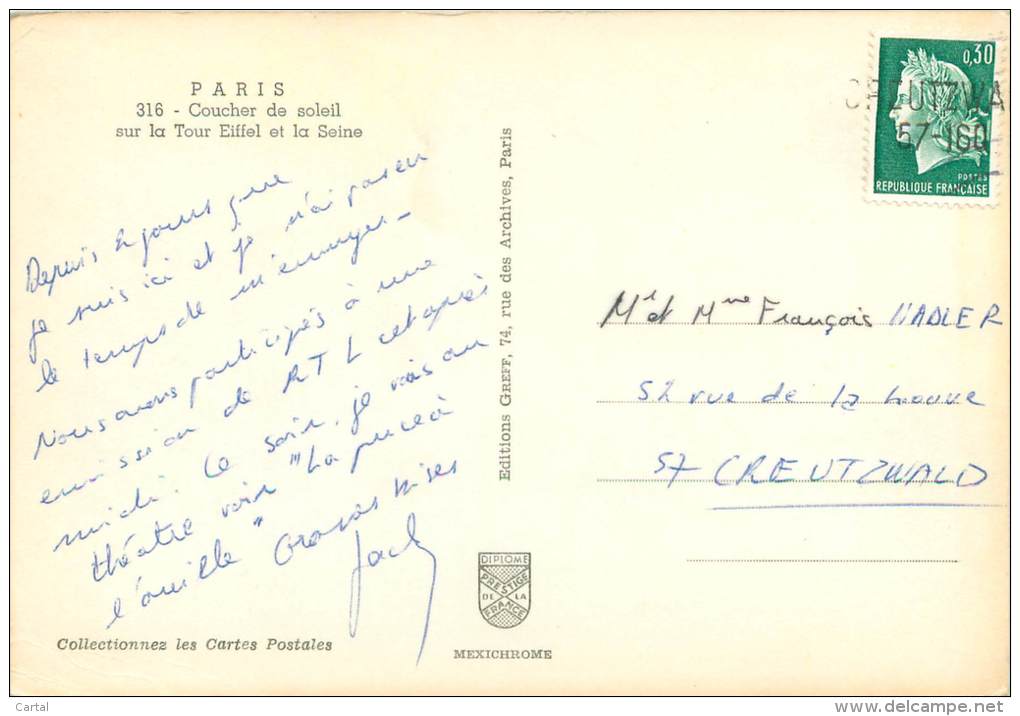 PARIS
316 - Coucher de soleil
sur la Tour Eiffel et la Seine
Depuis 2 jours que
je suis ici et je n'ai pas eu
le temps de m'ennuyer -
Nous avons participés à une
émission de RTL cet après
midi. Ce soir, je vais au
théâtre voir "La puce à
l'oreille" Grosses bises
Jack
Collectionnez les Cartes Postales
Editions GREFF, 74, rue des Archives, Paris
DIPLOME
PRESTIGE
DE LA
FRANCE
MEXICHROME
0,30
CREUTZWA
57-160
POSTES
REPUBLIQUE FRANÇAISE
Mr et Mme François NADLER
52 rue de la houve
57 CREUTZWALD
Cartal
delcampe.net